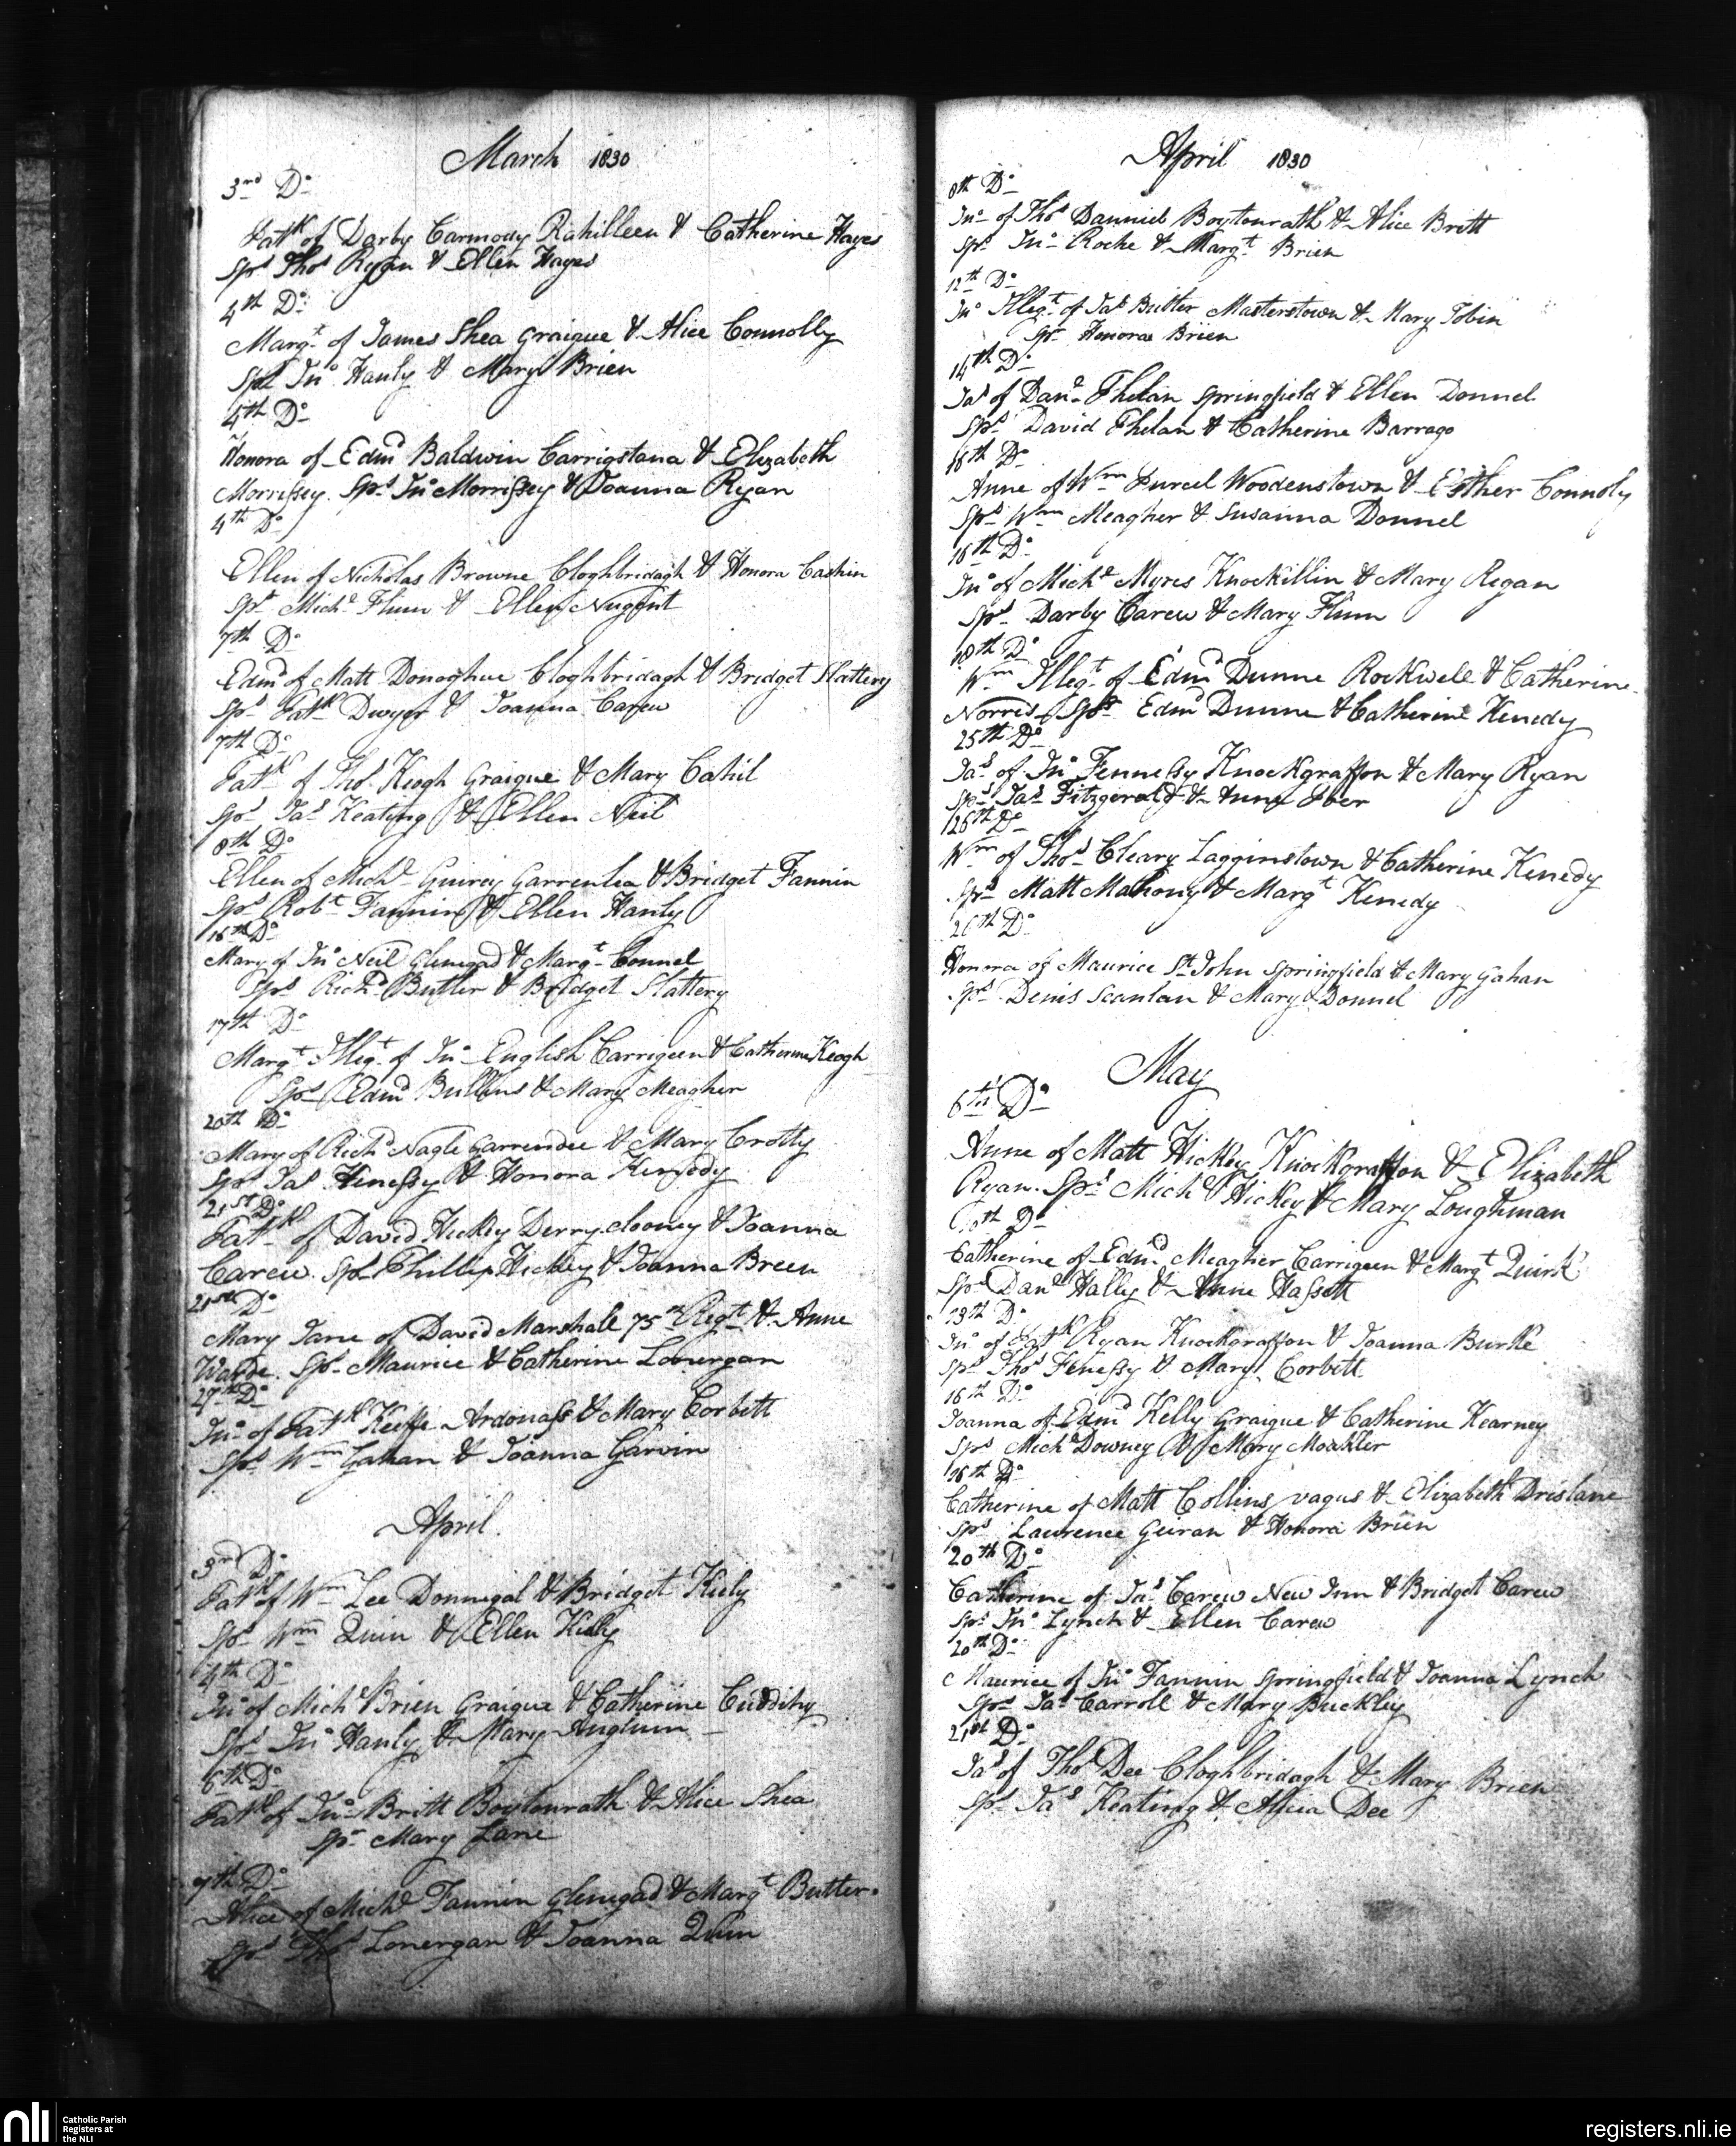 March 1830
3rd Do
Patk of Darby Carmody Rahilleen & Catherine Hayes
Sprs Thos Ryan & Ellen Hayes
4th Do
Margt of James Shea Graigue & Alice Connolly
Sprs Jno Hanly & Mary Brien
4th Do
Honora of Edmd Baldwin Carrigstana & Elizabeth
Morrissey. Sprs Jno Morrissey & Joanna Ryan
4th Do
Ellen of Nicholas Browne Cloghbridagh & Honora Cashin
Sprs Michl Flinn & Ellen Nugent
7th Do
Edmd of Matt Donoghue Cloghbridagh & Bridget Slattery
Sprs Patk Dwyer & Joanna Carew
7th Do
Patk of Thos Keogh Graigue & Mary Cahil
Sprs Jas Keating & Ellen Neil
8th Do
Ellen of Michl Guirey Garrenlea & Bridget Fannin
Sprs Robt Fannin & Ellen Hanly
16th Do
Mary of Jno Neil Glenegad & Margt Connel
Sprs Richd Butler & Bridget Slattery
17th Do
Margt Illegt of Jno English Carrigeen & Catherine Keogh
Sprs Edmd Bullins & Mary Meagher
20th Do
Mary of Richd Nagle Garrendee & Mary Crotty
Sprs Jas Henessy & Honora Kennedy
21st Do
Patk of David Hickey Derryclooney & Joanna
Carew. Sprs Phillip Hickey & Joanna Breen
21st Do
Mary Jane of David Marshall 75th Regt & Anne
Sprs Maurice & Catherine Lonergan
27th Do
Jno of Patk Keeffe Ardonass & Mary Corbett
Sprs Wm Gahan & Joanna Garvin
April.
3rd Do
Patk of Wm Lee Donnegal & Bridget Kiely
Sprs Wm Quin & Ellen Kiely
4th Do
Jno of Michl Brien Graigue & Catherine Cuddihy
Sprs Jno Hanly & Mary Anglum
6th Do
Patk of Jno Britt Boytonrath & Alice Shea
Spr Mary Lane
7th Do
Alice of Michl Fannin Glenegad & Margt Butler
Sprs Thos Lonergan & Joanna Quin
April 1830
8th Do
Jno of Thos Danniel Boytonrath & Alice Britt
Sprs Jno Roche & Margt Brien
12th Do
Jno Illegt of Jas Butler Masterstown & Mary Tobin
Spr Honora Brien
14th Do
Jas of Danl Phelan Springfield & Ellen Donnel
Sprs David Phelan & Catherine Barrago
16th Do
Anne of Wm Purcel Woodenstown & Esther Connoly
Sprs Wm Meagher & Susanna Donnel
16th Do
Jno of Michl Myres Knockillin & Mary Regan
Sprs Darby Carew & Mary Flinn
18th Do
Wm Illegt of Edmd Dunne Rockwell & Catherine
Norris. Sprs Edmd Dunne & Catherine Kenedy
25th Do
Jas of Jno Fennessy Knockgraffon & Mary Ryan
Sprs Jas Fitzgerald & Anne
26th Do
Wm of Thos Cleary Lagginstown & Catherine Kenedy
Sprs Matt Mahony & Margt Kenedy
26th Do
Honora of Maurice St John Springfield & Mary Gahan
Sprs Denis Scanlan & Mary Donnel
May
6th Do
Anne of Matt Hickey Knockgraffon & Elizabeth
Ryan. Sprs Michl Hickey & Mary Loughman
10th Do
Catherine of Edmd Meagher Carrigeen & Margt Quirk
Sprs Danl Hally & Anne Hassett
13th Do
Jno of Patk Ryan Knockgraffon & Joanna Burke
Sprs Thos Fenessy & Mary Corbett
16th Do
Joanna of Edmd Kelly Graigue & Catherine Kearney
Sprs Michl Downey & Mary Moakler
16th Do
Catherine of Matt Collins vagus & Elizabeth Drislane
Sprs Laurence Guiran & Honora Brien
20th Do
Catherine of Jas Carew New Inn & Bridget Carew
Sprs Jno Lynch & Ellen Carew
20th Do
Maurice of Jno Fannin Springfield & Joanna Lynch
Sprs Jas Carroll & Mary Buckley
21st Do
Jas of Thos Dee Cloghbridagh & Mary Brien
Sprs Jas Keating & Alicia Dee
nli
Catholic Parish
Registers at
the NLI
registers.nli.ie